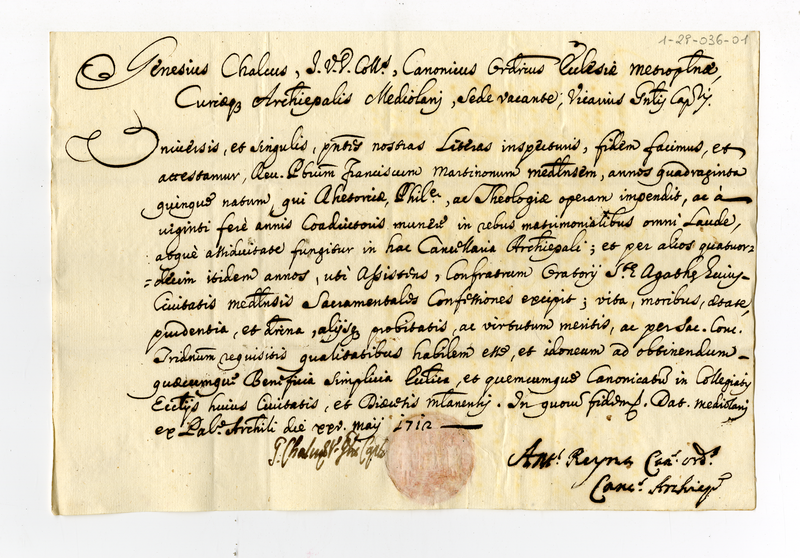 1-29-036-01
Genesius Chalcus, J.V.D. Coll.s, Canonicus Ord.rius Eclesiè metropłnæ,
Curiæq₃ Archiepalis Mediolanj, Sede vacante, Vicarius Gnłij Cap.lj.
Vniversis, et singulis, pñtes nostras Literas inspecturis, fidem facimus, et
attestamur, Reu. Pbrum Franciscum Martinonum medłnsem, annos quadraginta
quinque natum, qui Rhetoricæ, Phil.e, ac Theologiæ operam impendit, ac à
viginti ferè annis Coadiutoris munere in rebus matrimonialibus omni Laude,
atquè assiduitate fungitur in hac Cancellaria Archiepali; et per alios quatuor=
=decim itidem annos, uti Assistens, Confratrum Oratorij S.tę Agathę huius
Civitatis medłnsis Sacramentales Confessiones excipit; vita, moribus, ætate,
prudentia, et dřina, alijsq₃ probitatis, ac virtutum meritis, ac per Sac. Conc.
Tridnum requisitis qualitatibus habilem esse, et idoneum ad obtinendum
quæcumque Beneficia Simplicia, et quemcumque Canonicatũ in Collegiatis
Ecclijs huius Civitatis, et Diæcesis mlanensij. In quoru˜ fidem. Dat. mediolanj
ex Pal.o Archili die xxv. maij 1712
G. Chalcus V.s Gñis Cap.lis
Ant.s Reyna Can. ord.s
Canc.s Archiep.s